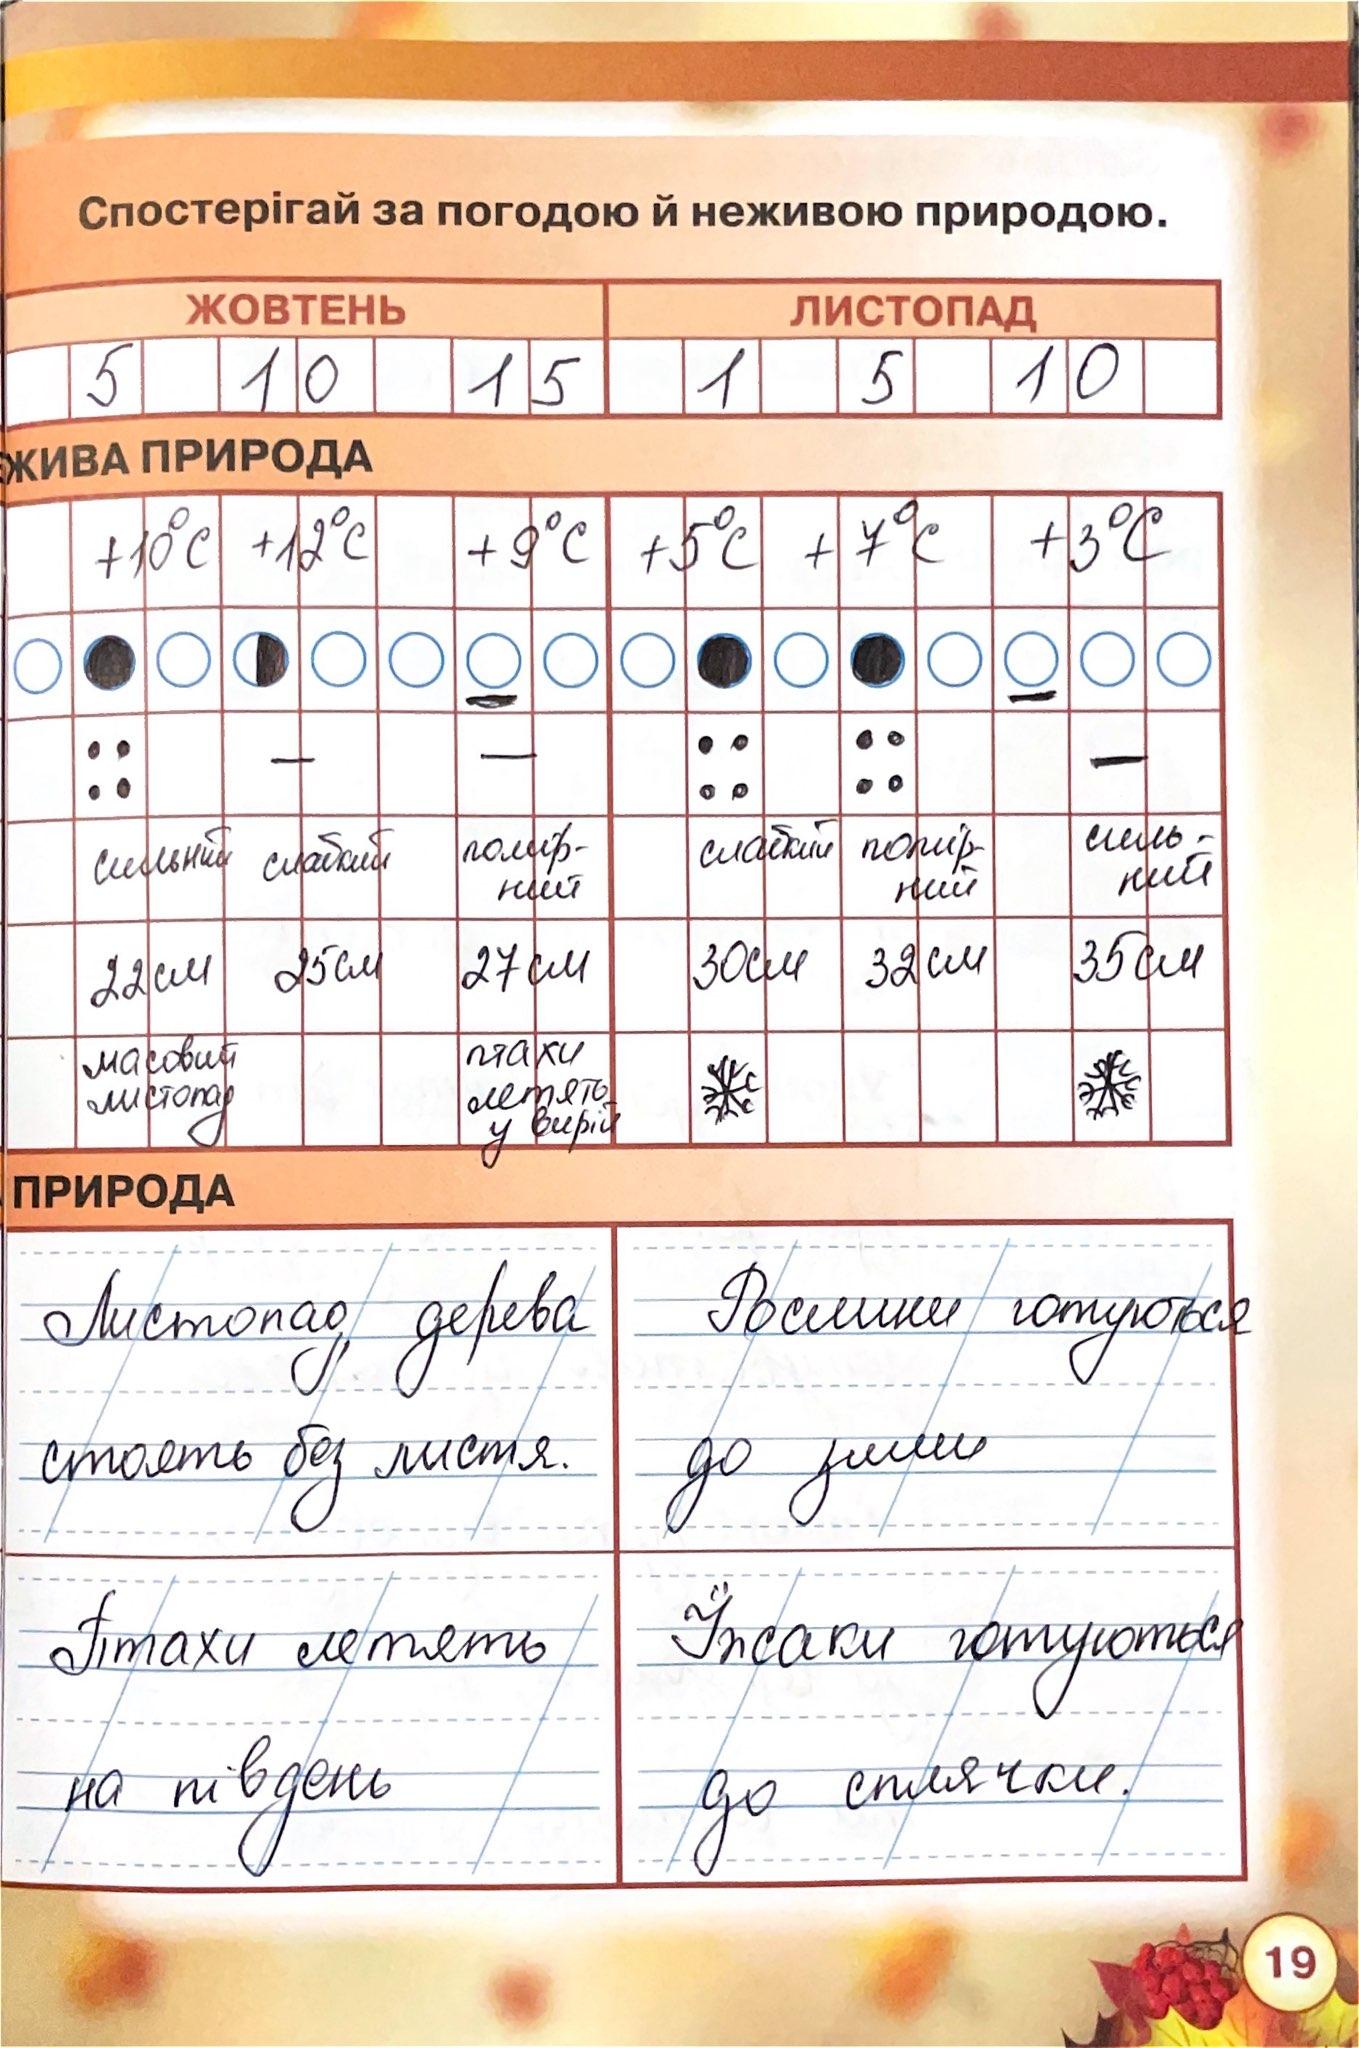 Спостерігай за погодою й неживою природою.
ЖОВТЕНЬ ЛИСТОПАД
5 10 15 1 5 10
ЖИВА ПРИРОДА
+10°C +12°C +9°C +5°C +7°C +3°C
сильний слабкий помір- слабкий помір- силь-
ний ний ний
22см 25см 27см 30см 32см 35см
масовий птахи
листопад летять
у вирій
ПРИРОДА
Листопад, дерева
стоять без листя.
Рослини готуються
до зими
Птахи летять
на південь
Їжаки готуються
до сплячки.
19